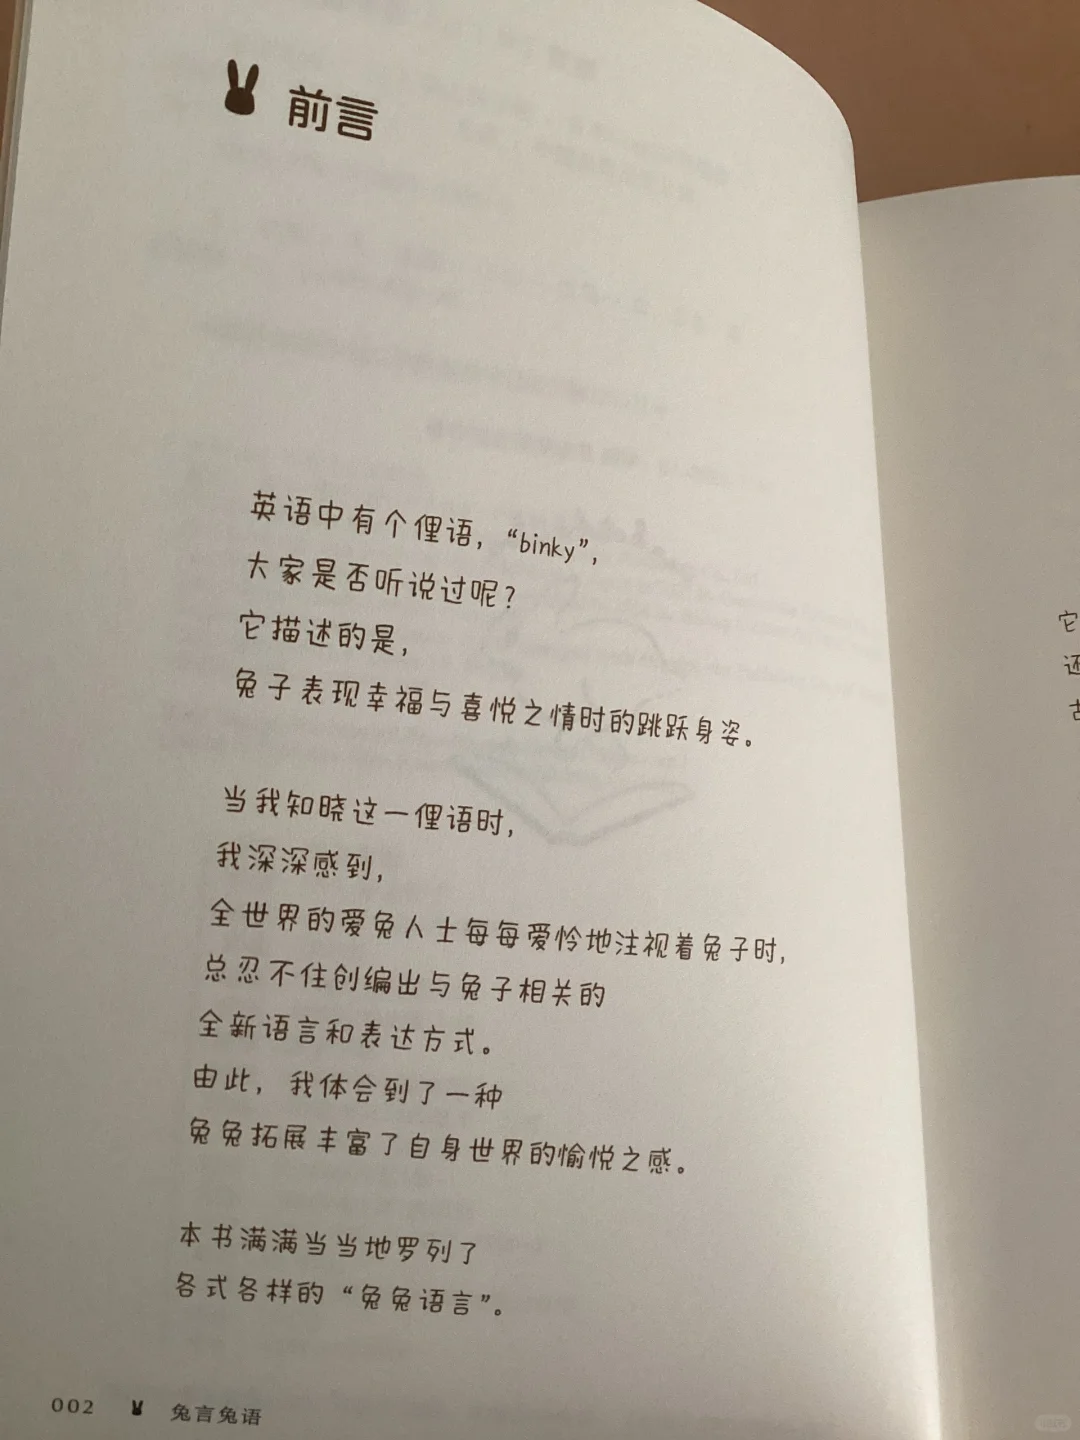 前言
英语中有个俚语，“binky”，
大家是否听说过呢？
它描述的是，
兔子表现幸福与喜悦之情时的跳跃身姿。
当我知晓这一俚语时，
我深深感到，
全世界的爱兔人士每每爱怜地注视着兔子时，
总忍不住创编出与兔子相关的
全新语言和表达方式。
由此，我体会到了一种
兔兔拓展丰富了自身世界的愉悦之感。
本书满满当当地罗列了
各式各样的“兔兔语言”。
002 兔言兔语
它
还
古